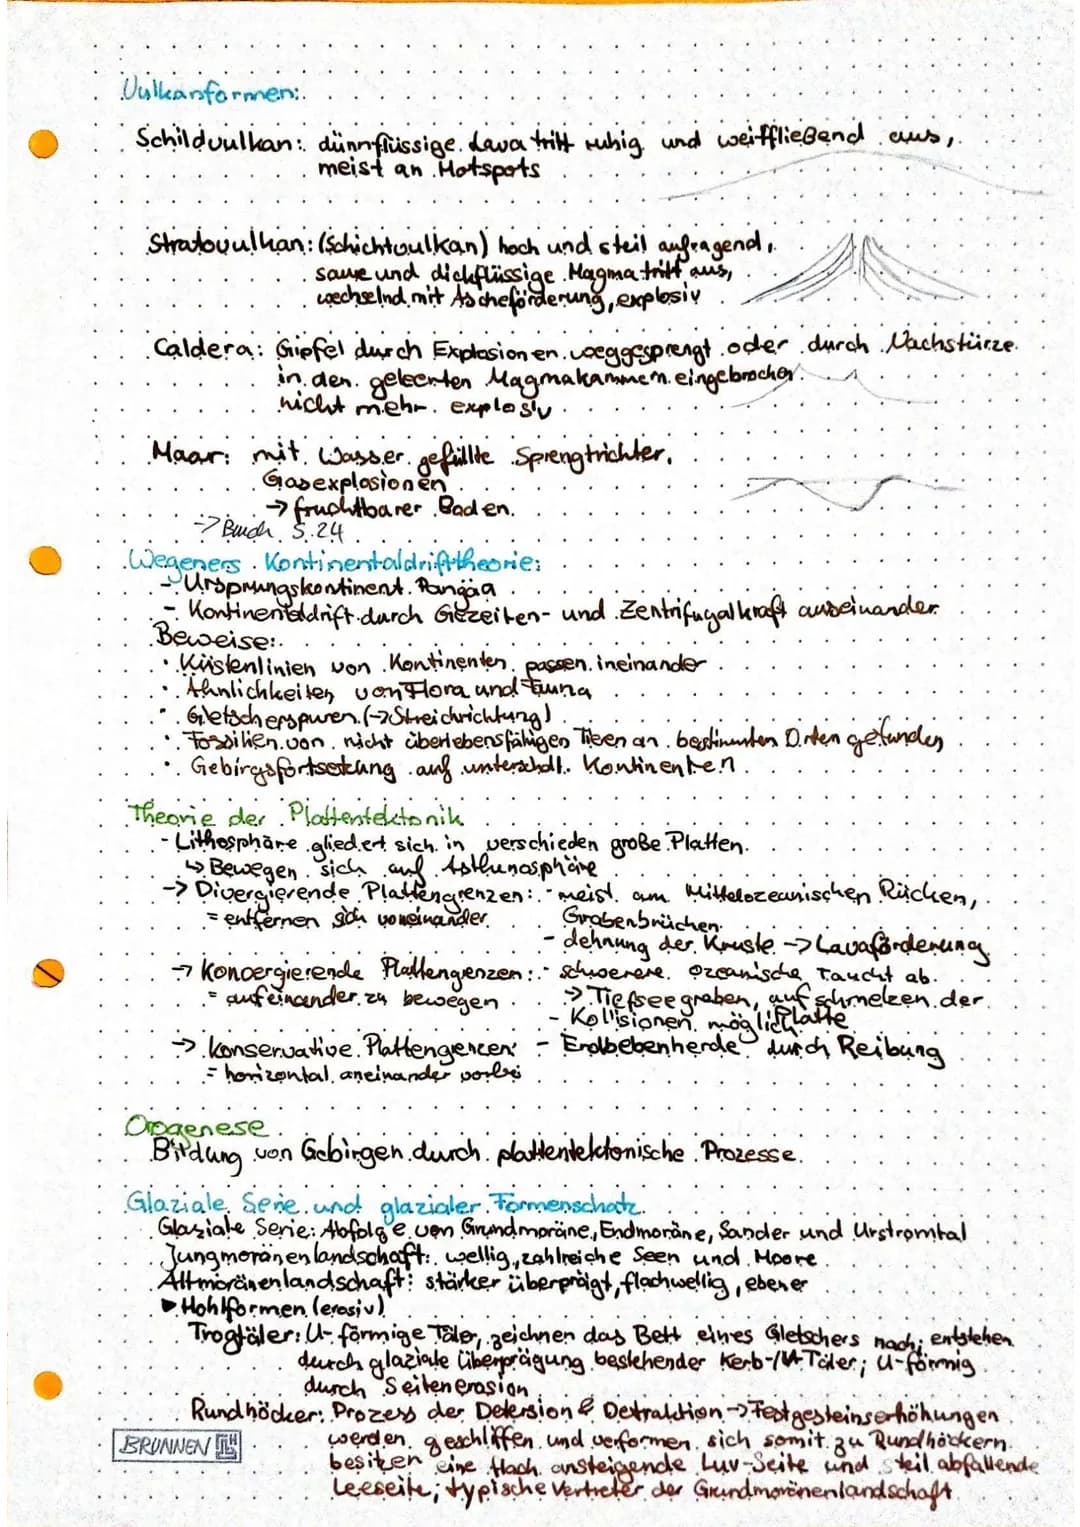 Vulkanformen:
Schildvulkan: dünnflüssige Lava tritt ruhig und weitfließend aus,
meist an Hotspots
Stratovulkan: (Schichtvulkan) hoch und steil aufragend,
saure und dickflüssige Magma tritt aus,
wechselnd mit Ascheförderung, explosiv
Caldera: Gipfel durch Explosionen weggesprengt oder durch Nachstürze
in den geleerten Magmakammern eingebrochen
nicht mehr explosiv
Maar: mit Wasser gefüllte Sprengtrichter,
Gasexplosionen
→ fruchtbarer Boden
→ Buch S. 24
Wegeners Kontinentaldrifttheorie:
- Ursprungskontinent Pangäa
- Kontinentaldrift durch Gezeiten- und Zentrifugalkraft auseinander
Beweise:
• Küstenlinien von Kontinenten passen ineinander
• Ähnlichkeiten von Flora und Fauna
• Gletscherspuren (→ Streichrichtung)
• Fossilien von nicht überlebensfähigen Tieren an bestimmten Orten gefunden
• Gebirgsfortsetzung auf unterschdl. Kontinenten
Theorie der Plattentektonik
- Lithosphäre gliedert sich in verschieden große Platten
↳ Bewegen sich auf Asthenosphäre
→ Divergierende Plattengrenzen: - meist am Mittelozeanischen Rücken,
= entfernen sich voneinander Grabenbrüchen
- dehnung der Kruste → Lavaförderung
→ konvergierende Plattengrenzen: - schwerere ozeanische taucht ab
= aufeinander zu bewegen → Tiefseegraben, aufschmelzen der
Platte
- Kollisionen möglich
→ konservative Plattengrenzen: - Erdbebenherde durch Reibung
= horizontal aneinander vorbei
Orogenese
Bildung von Gebirgen durch plattentektonische Prozesse
Glaziale Serie und glazialer Formenschatz
Glaziale Serie: Abfolge von Grundmoräne, Endmoräne, Sander und Urstromtal
Jungmoränenlandschaft: wellig, zahlreiche Seen und Moore
Altmoränenlandschaft: stärker überprägt, flachwellig, ebener
▶ Hohlformen (erosiv)
Trogtäler: U-förmige Täler, zeichnen das Bett eines Gletschers nach; entstehen
durch glaziale Überprägung bestehender Kerb-/V-Täler; U-förmig
durch Seitenerosion
Rundhöcker: Prozess der Detersion & Detraktion → Festgesteinserhöhungen
werden geschliffen und verformen sich somit zu Rundhöckern
besitzen eine flach ansteigende Luv-Seite und steil abfallende
Leeseite; typische Vertreter der Grundmoränenlandschaft
BRUNNEN